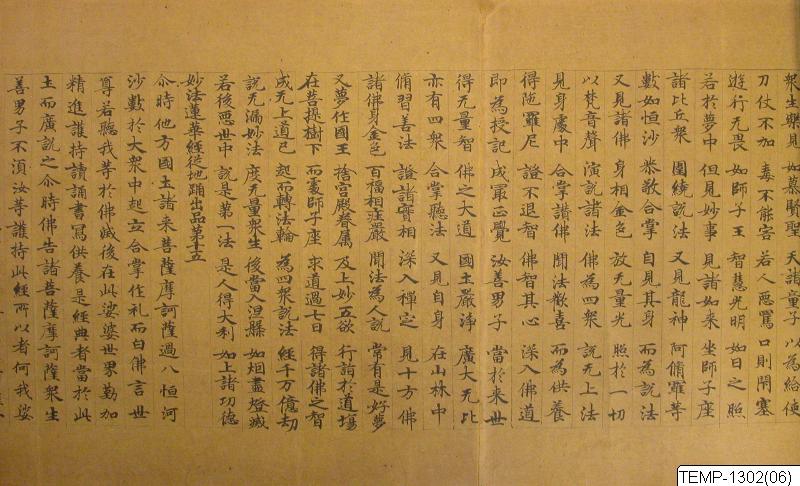 衆生樂見 如慕賢聖 天諸童子 以為給使
刀仗不加 毒不能害 若人惡罵 口則閉塞
遊行无畏 如師子王 智慧光明 如日之照
若於夢中 但見妙事 見諸如來 坐師子座
諸比丘衆 圍繞說法 又見龍神 阿脩羅等
數如恒沙 恭敬合掌 自見其身 而為說法
又見諸佛 身相金色 放无量光 照於一切
以梵音聲 演說諸法 佛為四衆 說无上法
見身處中 合掌讚佛 聞法歡喜 而為供養
得陁羅尼 證不退智 佛智其心 深入佛道
即為授記 成冣正覺 汝善男子 當於来世
得无量智 佛之大道 國土嚴淨 廣大无比
亦有四衆 合掌聽法 又見自身 在山林中
脩習善法 證諸實相 深入禪定 見十方佛
諸佛身金色 百福相莊嚴 聞法為人說 常有是好夢
又夢作國王 捨宮殿眷属 及上妙五欲 行詣於道場
在菩提樹下 而處師子座 求道過七日 得諸佛之智
成无上道已 起而轉法輪 為四衆說法 經千万億劫
說无漏妙法 度无量衆生 後當入涅槃 如烟盡燈滅
若後惡世中 說是第一法 是人得大利 如上諸功德
妙法蓮華經從地踊出品第十五
尒時他方國土諸来菩薩摩訶薩過八恒河
沙數於大衆中起立合掌作礼而白佛言世
尊若聽我等於佛滅後在此娑婆世界勤加
精進護持讀誦書寫供養是經典者當於此
土而廣說之尒時佛告諸菩薩摩訶薩衆生
善男子不須汝等護持此經所以者何我娑
TEMP-1302(06)